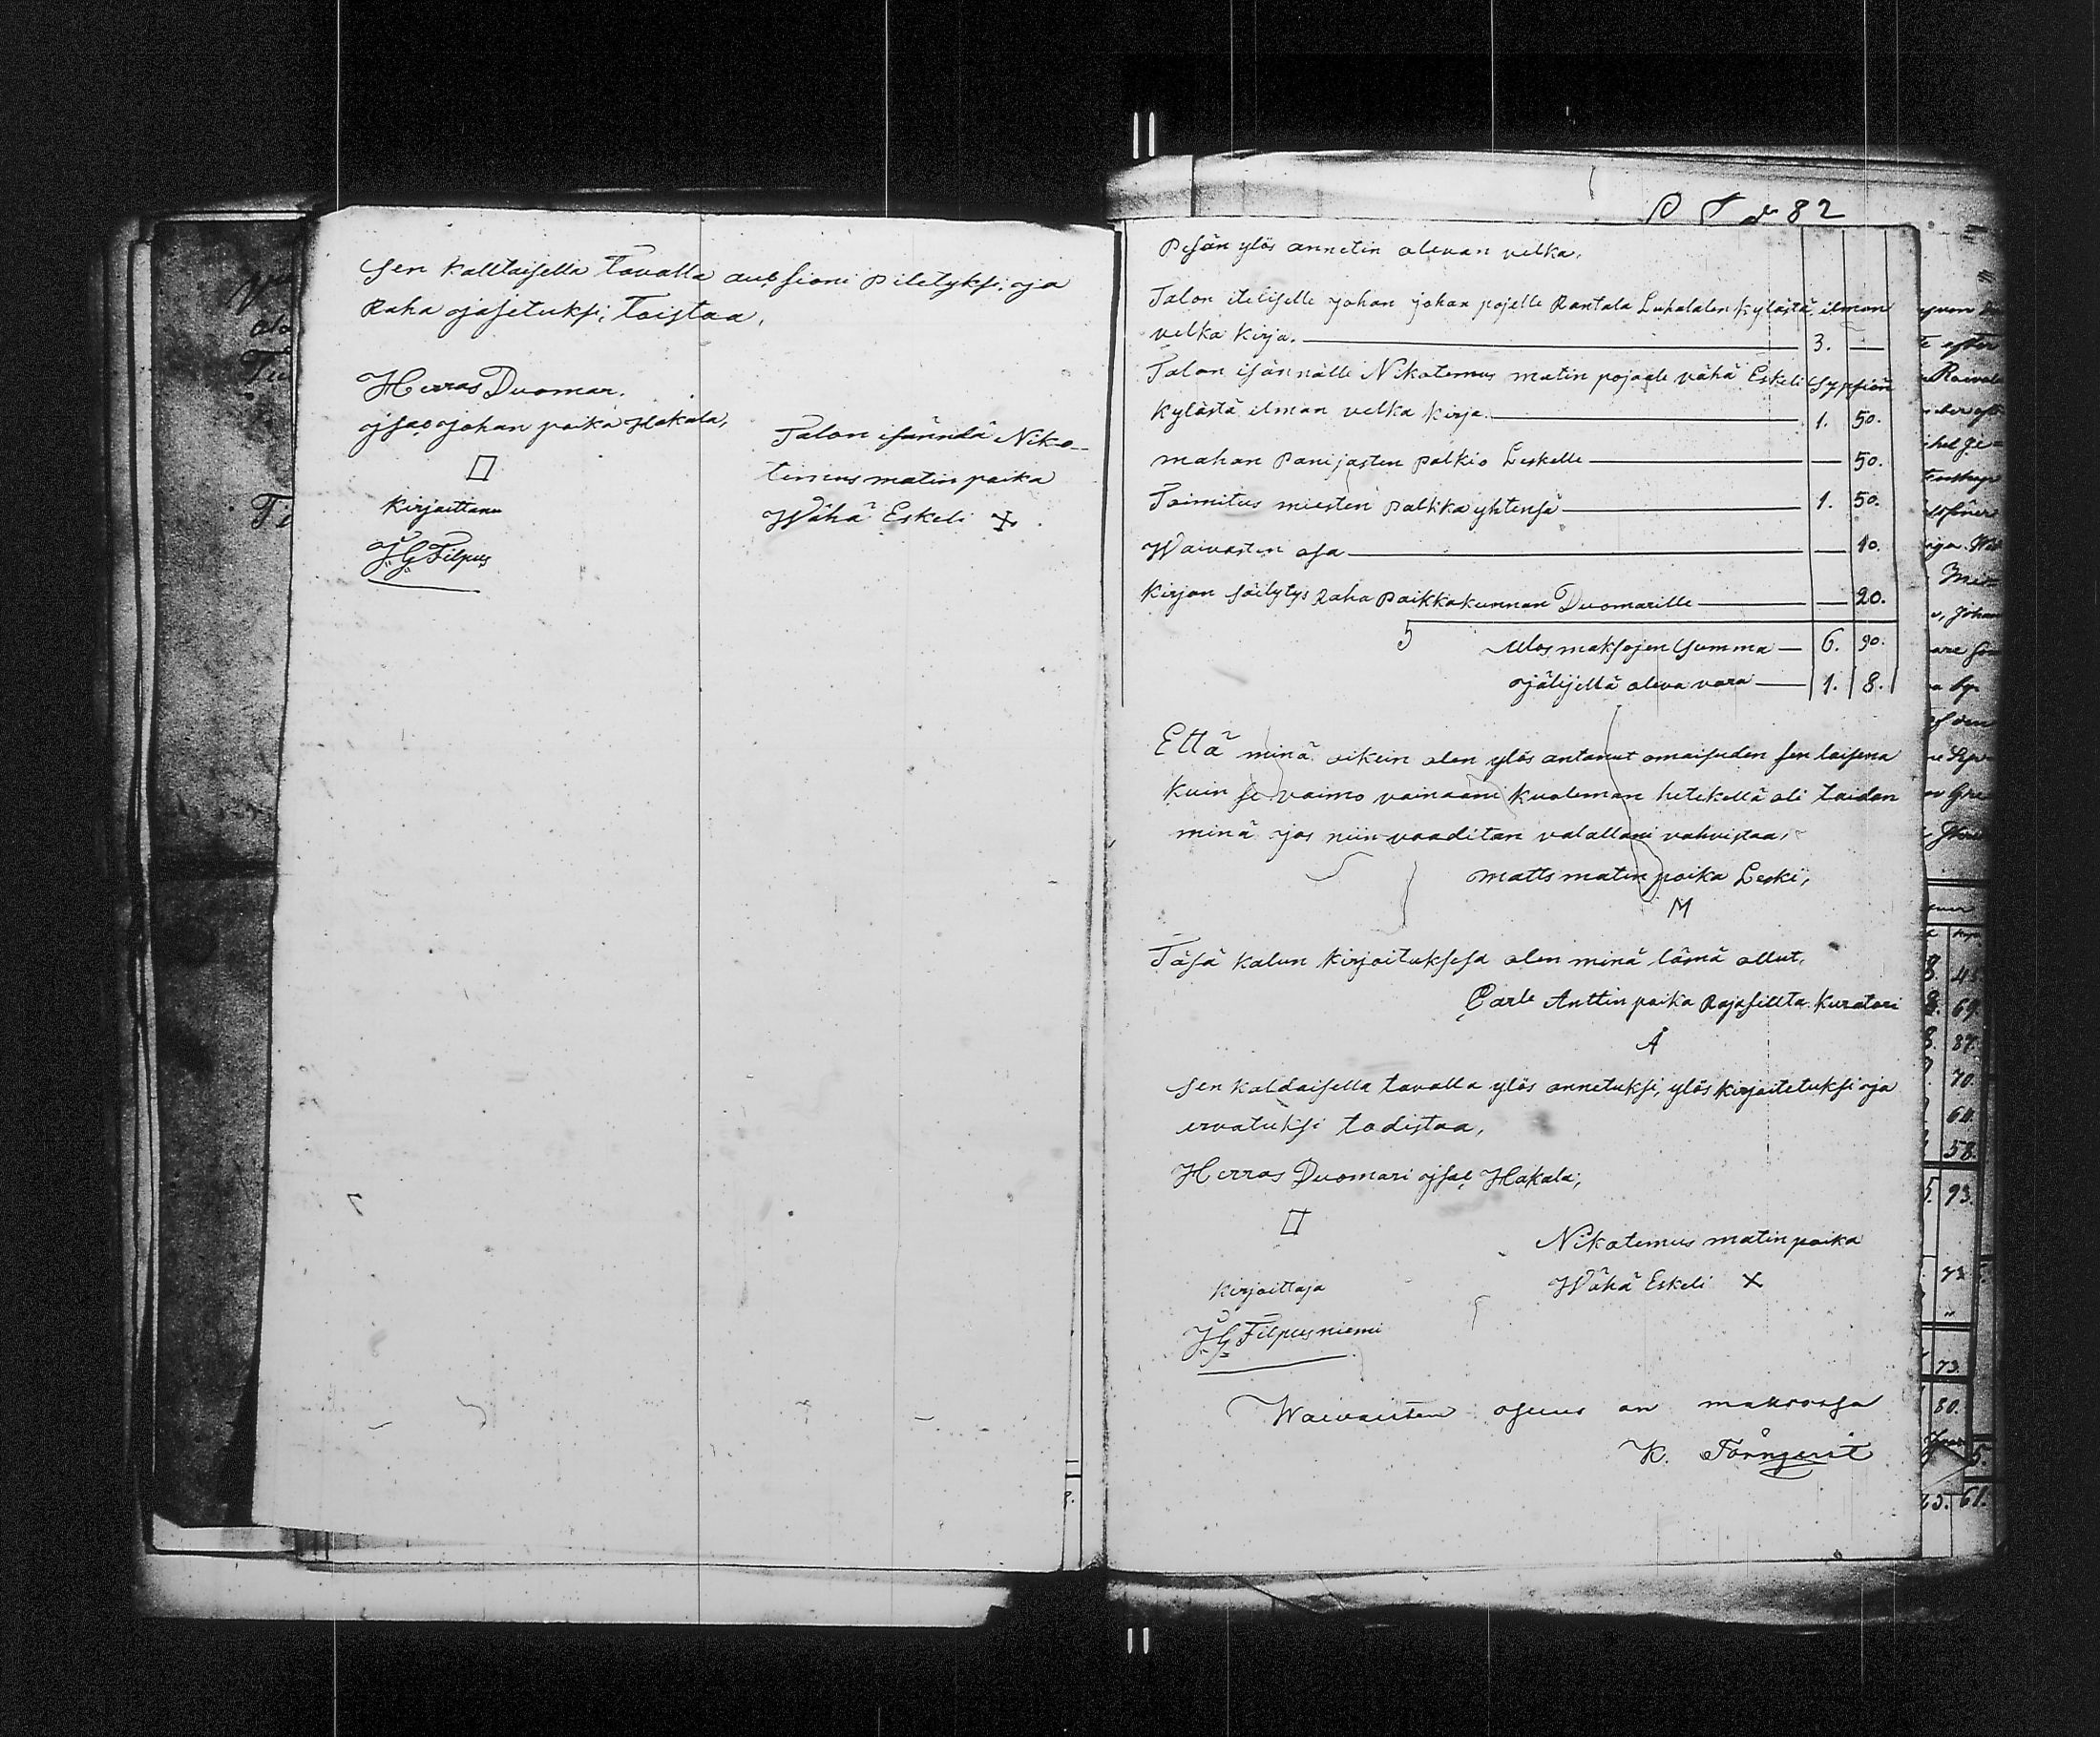 Sen kalltaisella Tavalla auksioni piletyksi, ja
Raha ja jetuksi, Toistaa,
Herras Duomar.
jsac johan poika Hakala,
kirjoittanu
J. G. Filpus
Talon isändä Niko-
temus matin poika
Wähä Eskeli +
82
Pesän ylös annetin olevan velka.
Talon itelliselle johan johan pojalle Rantala Luhalalen kylästä, ilman
velka kirja. 3. —
Talon isännälle Nikotemus matin pojaale vähä Eskeli Sypsiön
kylästä ilman velka kirja. 1. 50.
mahan Panijasten palkio Leskelle — 50.
Toimitus miesten palkka yhtensä 1. 50.
Waivasten osa — 10.
kirjan säilytys Raha Paikkakunnan Duomarille — 20.
5 Ulos maksojen Summa — 6. 90.
jälijellä oleva vara — 1. 8.
Että minä oikein olen ylös antanut omaisuden sen laisena
kuin se vaimo vainaani kuoleman hetekellä oli taidan
minä jos niin vaaditan valallani vahvistaa,
matts matin poika Leski,
M
Täsä kalun kirjoituksesa olen minä läsnä ollut,
Carle Anttin poika Rajasillta. kuratori
Å
Sen kaldaisella tavalla ylös annetuksi, ylös kirjoitetuksi ja
arvatuksi todistaa,
Herras Duomari jsac Hakala,
Nikotemus matin poika
Wähä Eskeli x
kirjoittaja
J. G. Filpusniemi
Waivaisten osuus on maksossa
K. Törnqvist